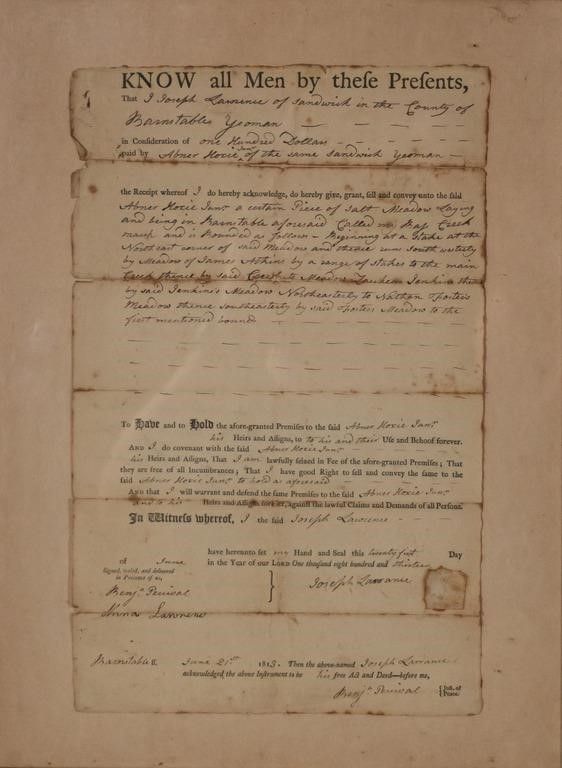 KNOW all Men by theſe Preſents,
That I Joseph Lawrence of Sandwich in the County of
Barnstable Yeoman
in Conſideration of one Hundred Dollars
paid by Abner Hoxie Junr. of the same Sandwich Yeoman
the Receipt whereof I do hereby acknowledge, do hereby give, grant, ſell and convey unto the ſaid
Abner Hoxie Junr. a certain Piece of Salt Meadow Laying
and being in Barnstable aforesaid Called my Bass Creek
marsh and is Bounded as follows - Beginning at a Stake at the
Northeast corner of said Meadow and thence runs Southwesterly
by Meadow of James Atkins by a range of Stakes to the main
Creek thence by said Creek to Meadow Zaccheus Jenkins then
by said Jenkins's Meadow Northeasterly to Nathan Fosters
Meadow thence Southeasterly by said Fosters Meadow to the
first mentioned bounds
To Have and to Hold the afore-granted Premiſes to the ſaid Abner Hoxie Junr.
his Heirs and Aſſigns, to to his and their Uſe and Behoof forever.
And I do covenant with the ſaid Abner Hoxie Junr.
his Heirs and Aſſigns, That I am lawfully ſeized in Fee of the afore-granted Premiſes; That
they are free of all Incumbrances; That I have good Right to ſell and convey the ſame to the
ſaid Abner Hoxie Junr. to hold as aforesaid
And that I will warrant and defend the ſame Premiſes to the ſaid Abner Hoxie Junr.
and to his Heirs and Aſſigns forever, againſt the lawful Claims and Demands of all Perſons.
In Witneſs whereof, I the ſaid Joseph Lawrence
have hereunto ſet my Hand and Seal this twenty first Day
of June in the Year of our LORD One thouſand eight hundred and thirteen
Signed, ſealed, and delivered
in Preſence of us,
Joseph Lawrance
Benja. Percival
Anna Lawrence
Barnstable ss. June 21st 1813. Then the above-named Joseph Lawrance
acknowledged the above Inſtrument to be his free Act and Deed—before me,
Benja. Percival Juſt. of Peace.